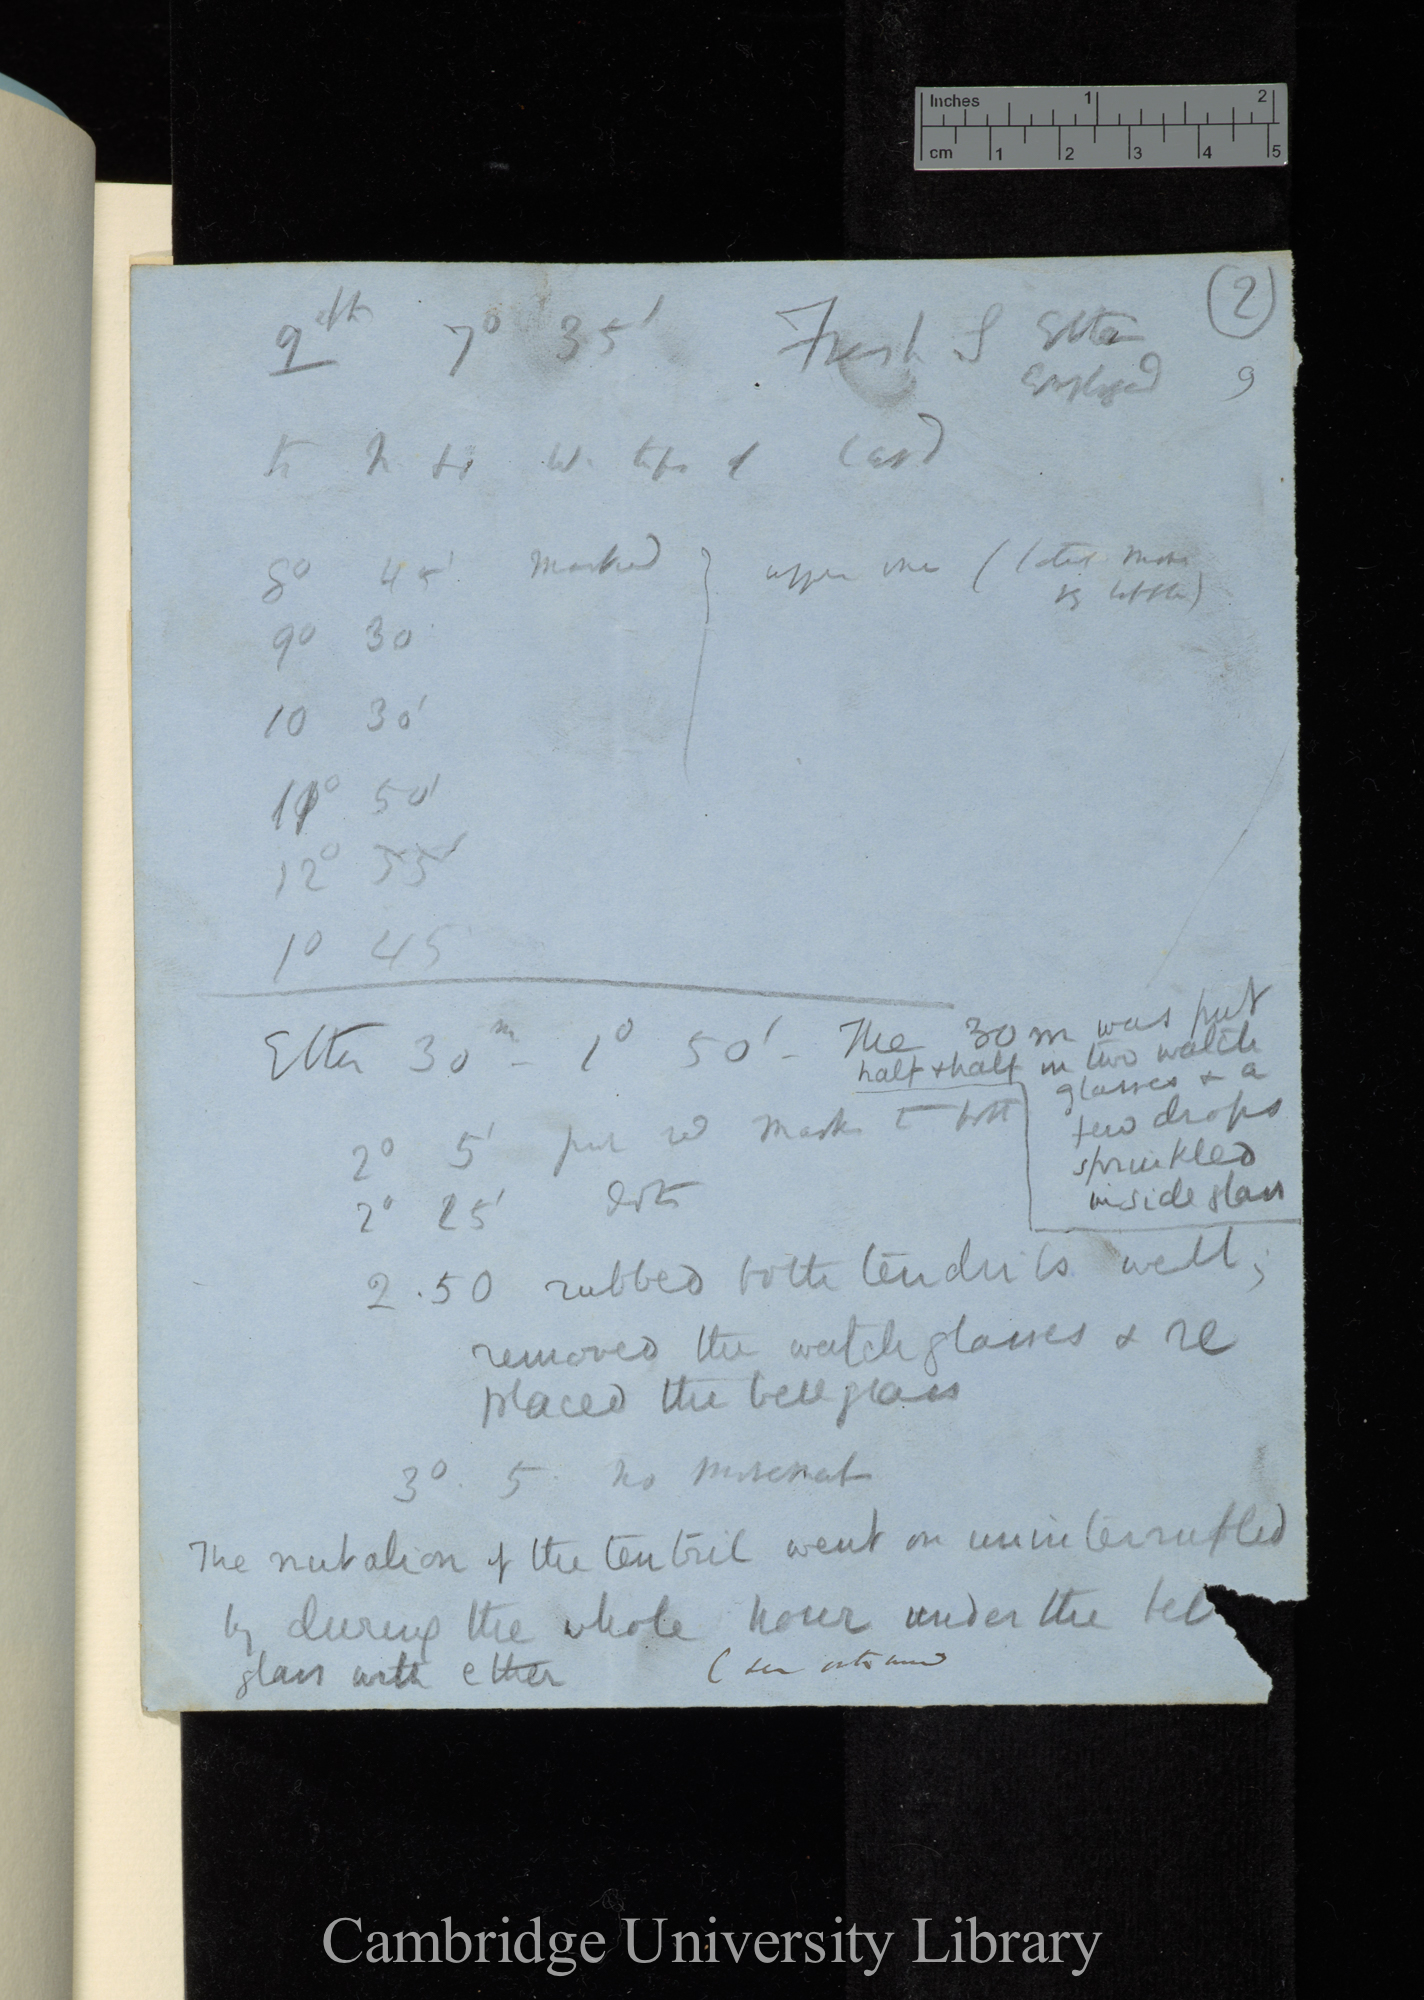 Inches 1 2
cm 1 2 3 4 5
(2)
9th 7° 35' Fresh S Ether
Employed 9
8° 45' marked } upper one
9° 30'
10 30'
11° 50'
12° 55'
1° 45
Ether 30m – 1° 50' – The 30 m was put
half & half in two watch
glasses & a
few drops
sprinkled
inside glass
2° 5' put red marks to both
2° 25' ditto
2.50 rubbed both tendrils well;
removed the watch glasses & re
placed the bell glass
3° 5 no movement
The nutation of the tendril went on uninterruptled
by during the whole hour under the bel
glass with ether
Cambridge University Library